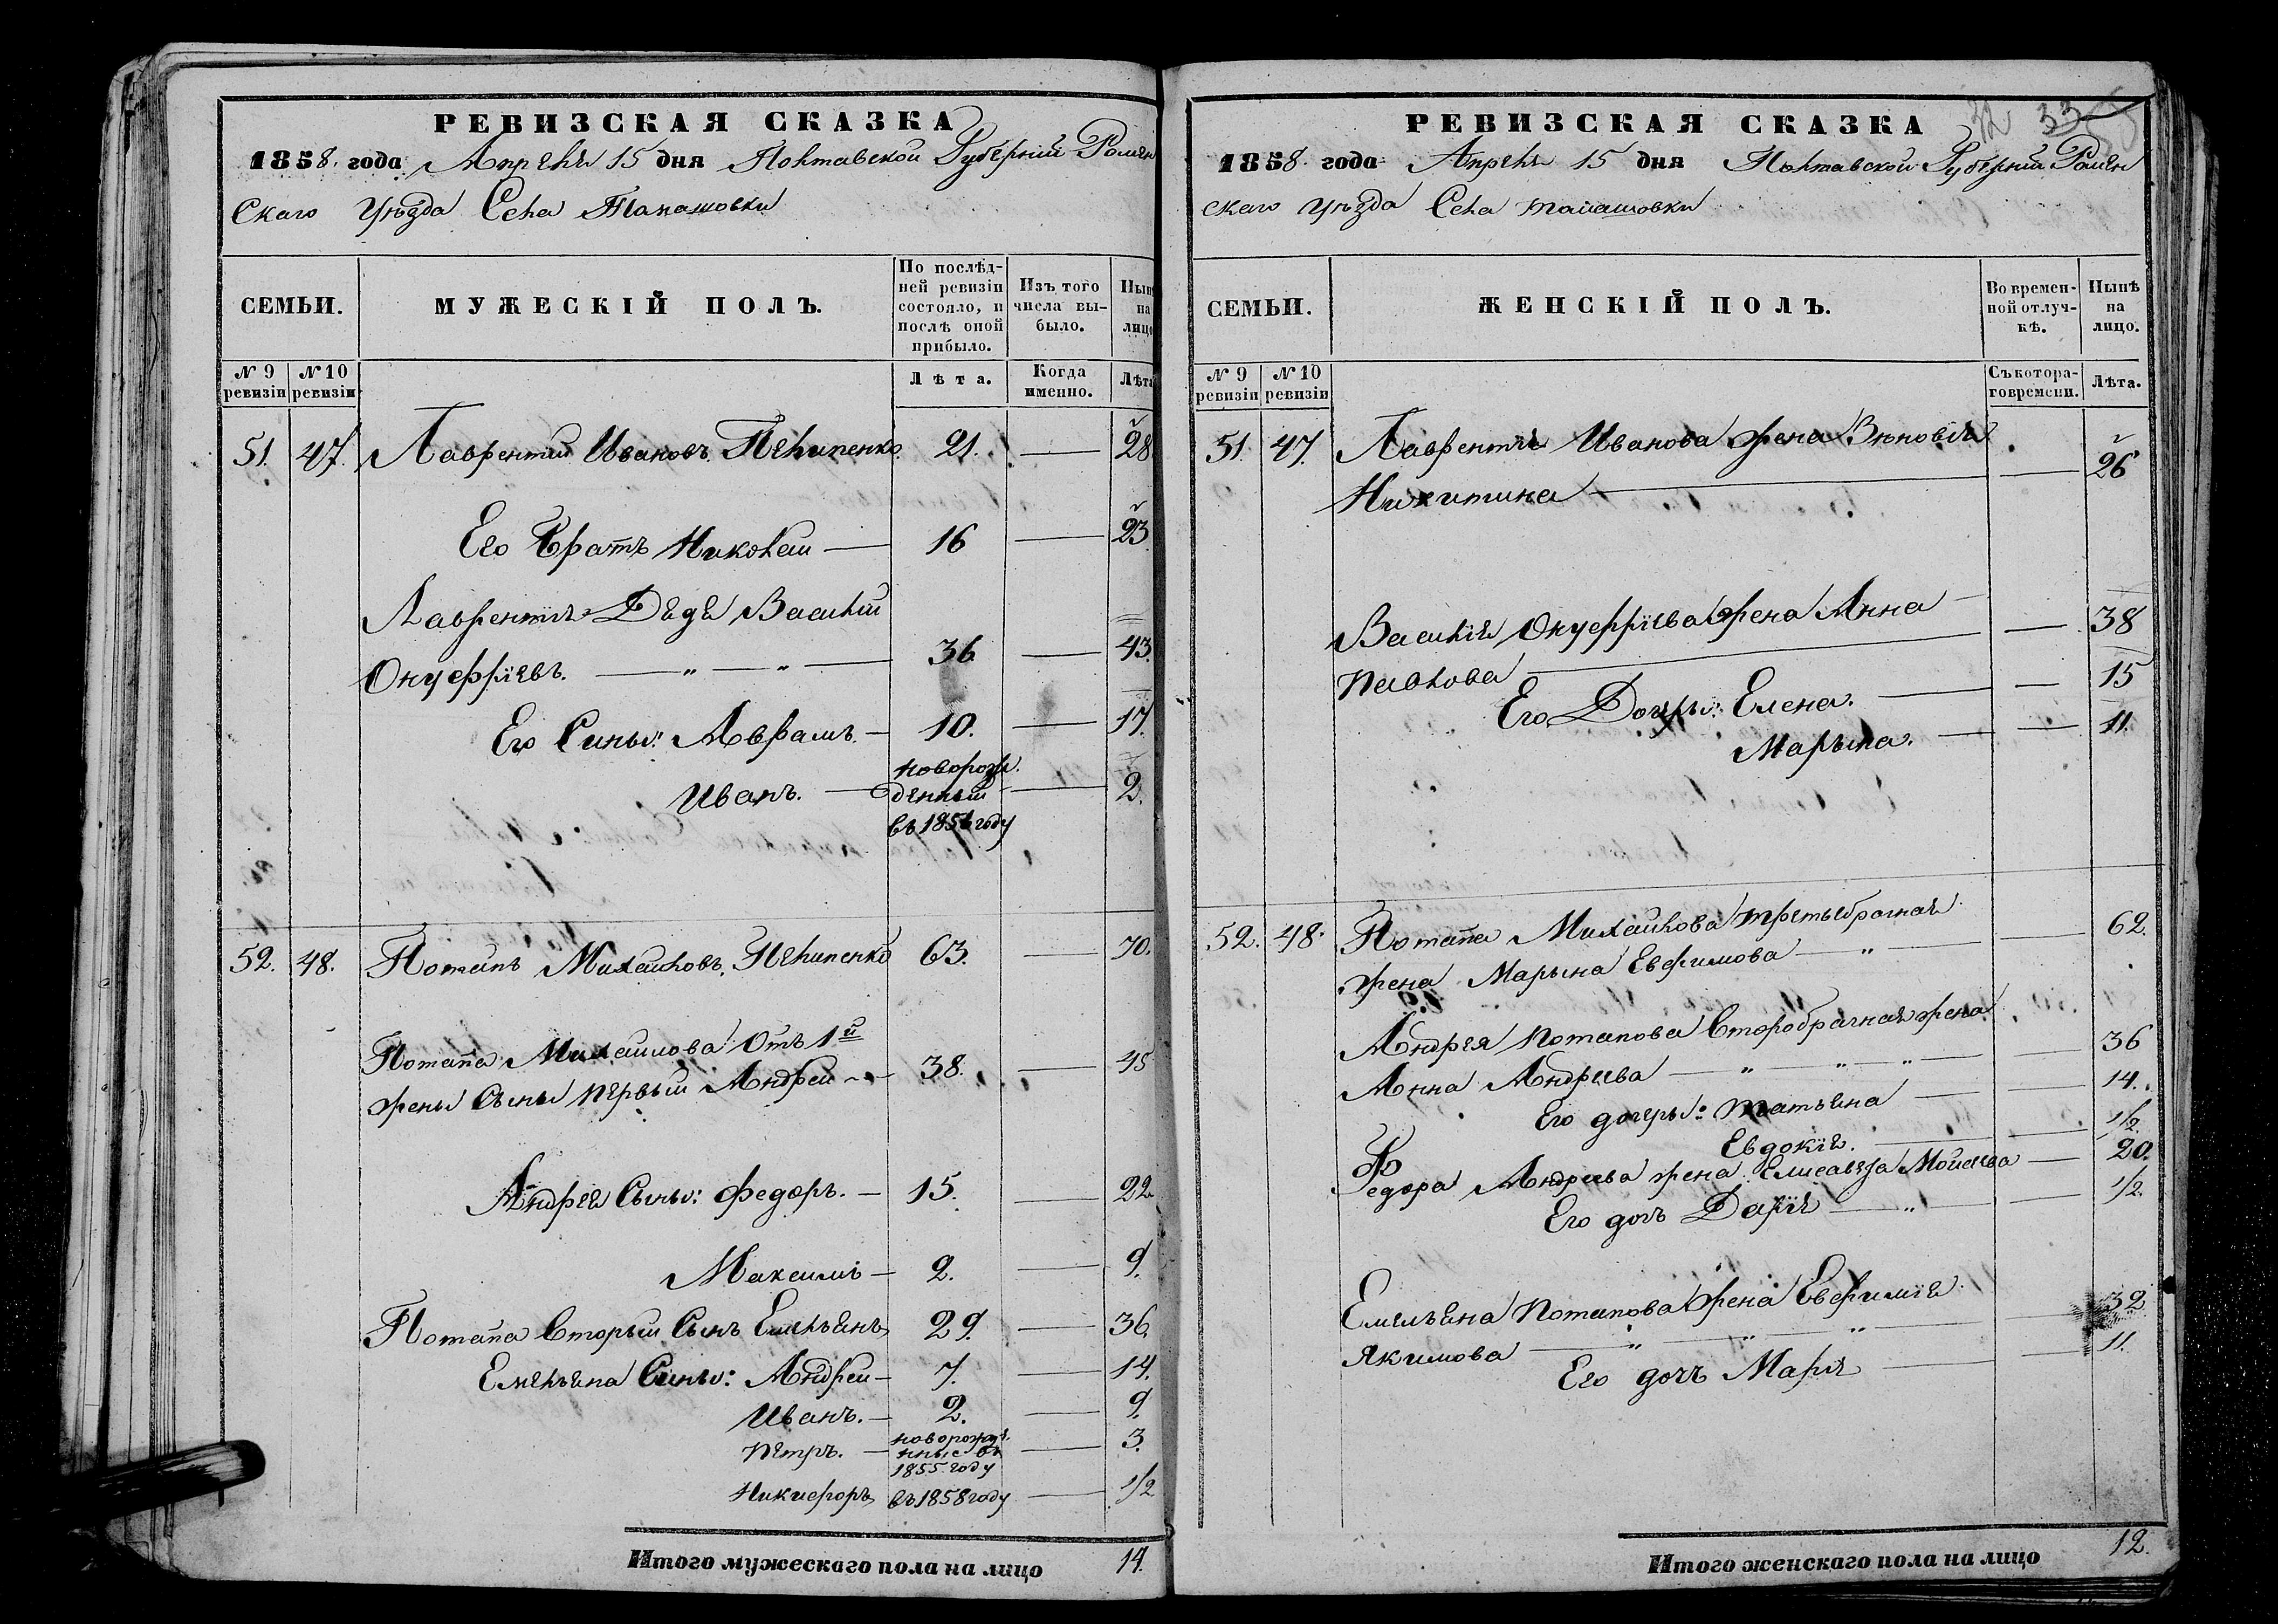 РЕВИЗСКАЯ СКАЗКА
1858. года Апреля 15 дня Полтавской Губернии Ромен
скаго Уѣзда Села Талалаевки
СЕМЬИ.
МУЖЕСКІЙ ПОЛЪ.
По послѣд-
ней ревизіи
состояло, и
послѣ оной
прибыло.
Изъ того
числа вы-
было.
Нын
на
лицо
№ 9
ревизіи
№ 10
ревизіи
Лѣта.
Когда
именно.
Лѣта
51. 47. Лаврентий Ивановъ Пелипенко. 21. — 28
Его Братъ Николай — 16 — 23
Лаврентия Дядя Василий
Онуфріевъ. — " — " — 36 — 43.
Его Сины: Аврамъ. — 10. — 17.
Иванъ. — новорож.
денный — 2.
въ 1856 году
52. 48. Потапъ Михайловъ Пелипенко 63. — 70.
Потапа Михайлова Отъ 1й
жены Сыны первый Андрей — 38. — 45
Андрея Сыны: Федоръ. — 15. — 22
Максимъ — 2. — 9.
Потапа Вторый Сынъ Емельянъ 29. — 36.
Емельяна Сины: Андрей — 7. — 14.
Иванъ. — 2. — 9.
Петръ. — новорожде.
нные въ — 3.
1855 году
Никифоръ въ 1858 году — 1/2
Итого мужескаго пола на лицо 14.
32 33
РЕВИЗСКАЯ СКАЗКА
1858. года Апреля 15 дня Полтавской Губернии Ромен
скаго Уѣзда Села
СЕМЬИ.
ЖЕНСКІЙ ПОЛЪ.
Во времен-
ной отлуч-
кѣ.
Нынѣ
на
лицо.
№ 9
ревизіи
№ 10
ревизіи
Съ котора-
го времени.
Лѣта.
51. 47. Лаврентия Иванова жена Зѣновія
Никитина — — 26
Василія Онуфріева жена Анна — — 38
Павлова
Его Дочеры: Елена. — — 15
Марына. — — 11.
52. 48. Потапа Михайлова третьебрачная — 62.
жена Марына Евфимова — "
Андрея Потапова Второбрачная жена
Анна Андреева — " — " — " — — 36
Его дочеры: Татьяна — — 14.
Евдокія. — 1/2.
Федора Андреева жена Елисавета Мойсеева — 20.
Его дочь Дарія — " — — 1/2.
Емельяна Потапова жена Евфимія
Якимова — " — " — " — — 32
Его дочь Марія — — 11.
Итого женскаго пола на лицо 12.